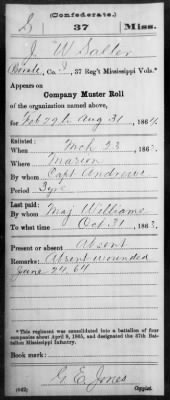 (Confederate.)
S 37 Miss.
J W Salter
Co. I, 37 Reg't Mississippi Vols.*
Appears on
Company Muster Roll
of the organization named above,
for Feb 29 to Aug 31, 1864.
Enlisted:
When Mch 23, 186
Where Marion
By whom Capt Andrews
Period 3 yrs
Last paid:
By whom Maj Williams
To what time Oct 31, 1863.
Present or absent Absent
Remarks: Absent wounded
June 24. 64
*This regiment was consolidated into a battalion of four
companies about April 9, 1865, and designated the 37th Bat-
talion Mississippi Infantry.
Book mark:
G. E. Jones
(642) Copyist.